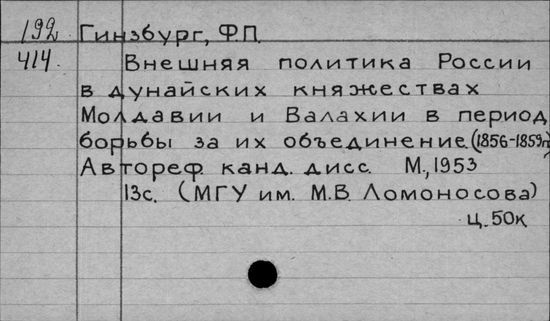 192 Гинзбург, Ф.П.
414. Внешняя политика России
в дунайских княжествах
Молдавии и Валахии в период
борьбы за их объединение. (1856-1859гг)
Автореф. канд. дисс. М., 1953
13с. (МГУ им. М.В. Ломоносова)
ц. 50к